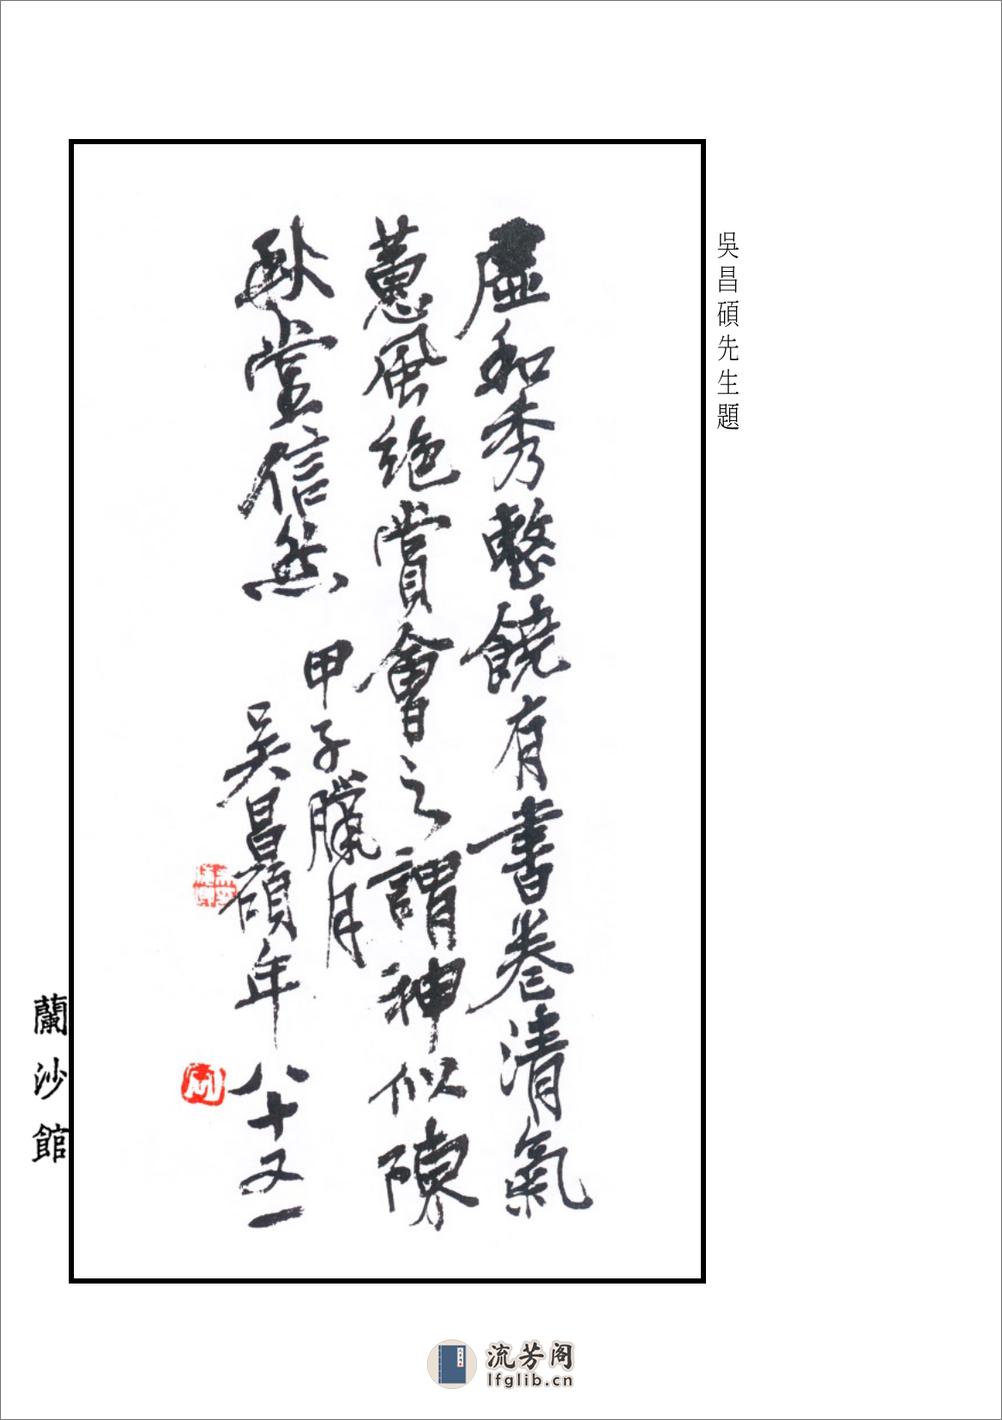 吳昌碩先生題
虛和秀整饒有書卷清氣
蕙風絕賞會之謂神似陳
秋堂信然
甲子臘月
吳昌碩年八十又一
蘭沙館
流芳阁
lfglib.cn